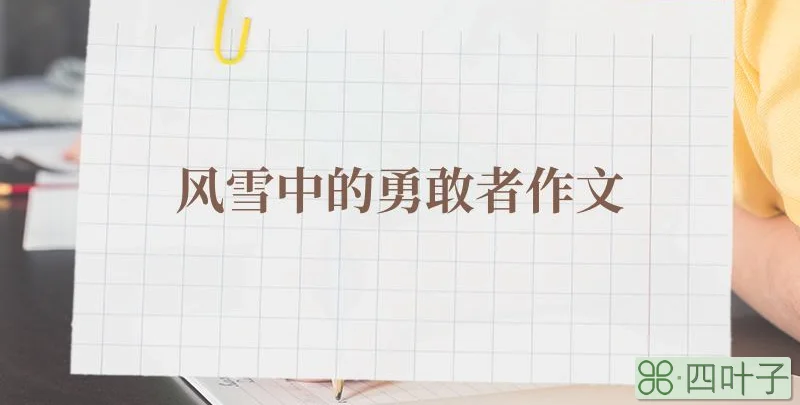 风雪中的勇敢者作文
四叶子